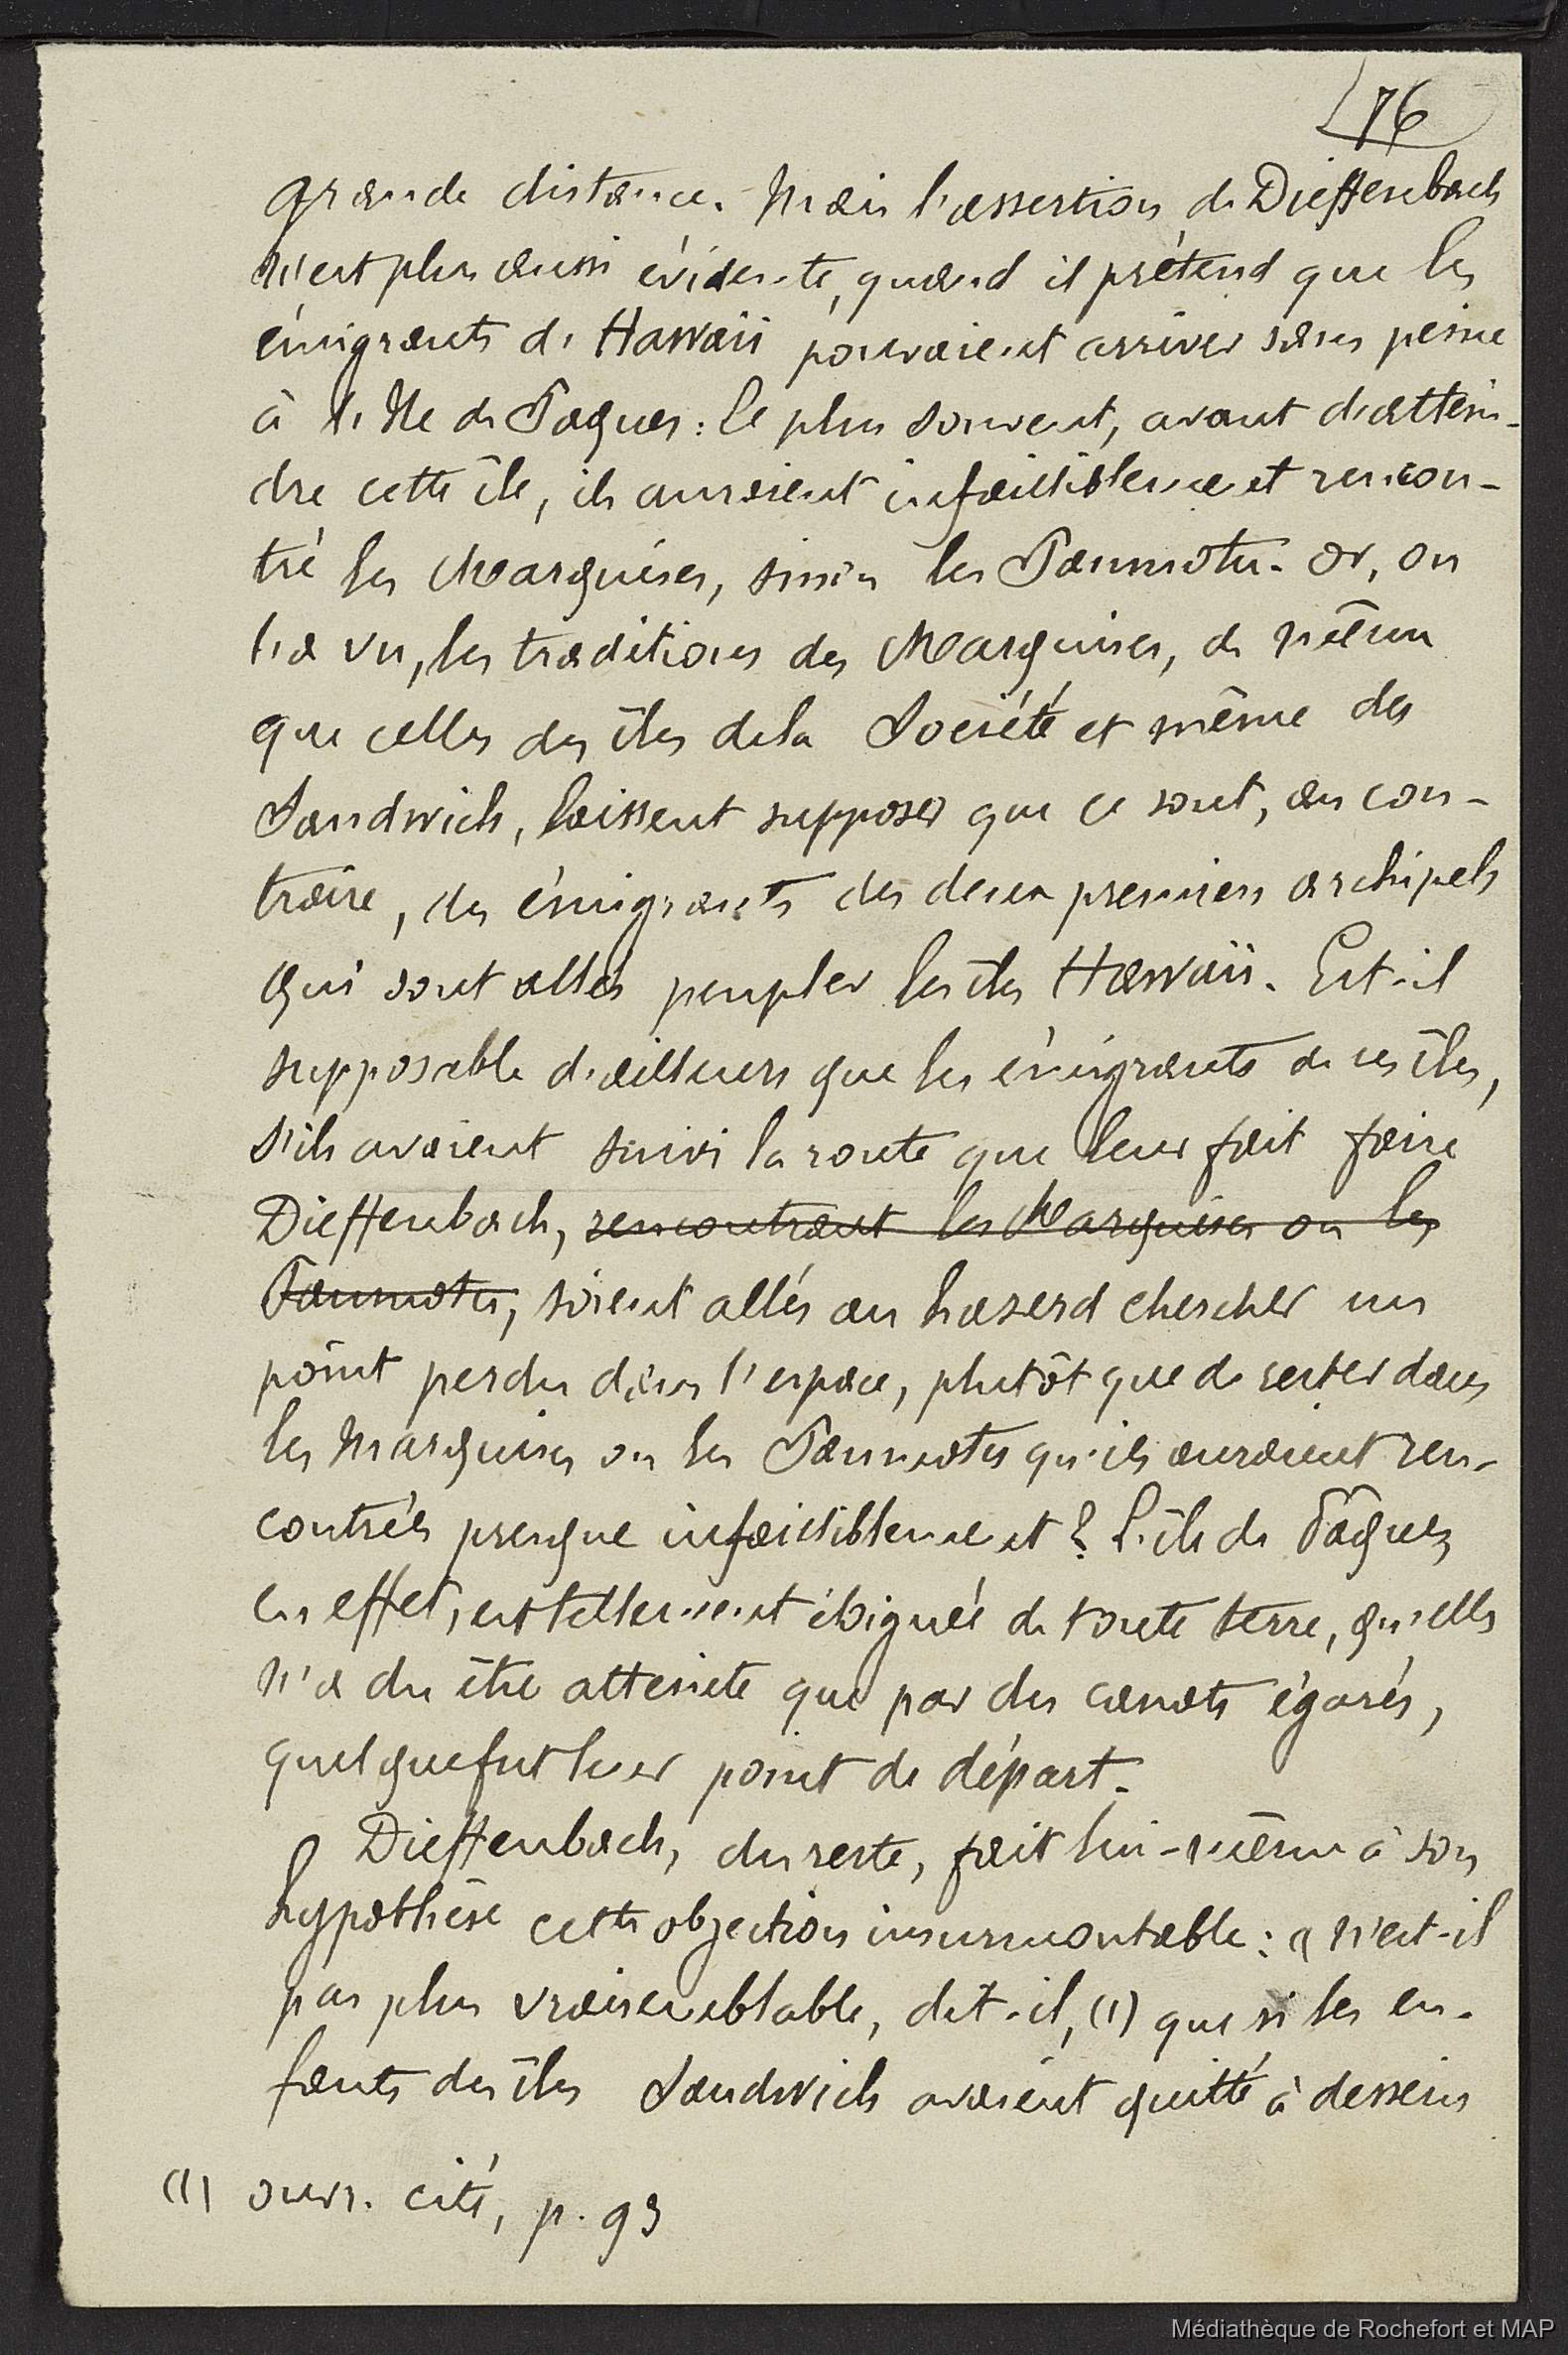 76
grande distance. Mais l'assertion de Dieffenbach
n'est plus aussi évidente, quand il prétend que les
émigrants de Hawaii pouvaient arriver sans peine
à l'Ile de Pâques : le plus souvent, avant d'attein-
dre cette île, ils auraient infailliblement rencon-
tré les Marquises, sinon les Paumotu. Or, on
l'a vu, les traditions des Marquises, de même
que celles des îles de la Société et même des
Sandwich, laissent supposer que ce sont, au con-
traire, des émigrants des deux premiers archipels
qui sont allés peupler les îles Hawaii. Est-il
supposable d'ailleurs que les émigrants de ces îles,
s'ils avaient suivi la route que leur fait faire
Dieffenbach, rencontrant les Marquises ou les
Paumotu, soient allés au hasard chercher un
point perdu dans l'espace, plutôt que de rester dans
les Marquises ou les Paumotu qu'ils auraient ren-
contrés presque infailliblement ? L'île de Pâques,
en effet, est tellement éloignée de toute terre, qu'elle
n'a du être atteinte que par des canots égarés,
quel que fut leur point de départ.
Dieffenbach, du reste, fait lui-même à son
hypothèse cette objection insurmontable : « N'est-il
pas plus vraisemblable, dit-il, (1) que si les en-
fants des îles Sandwich avaient quitté à dessein
(1) ouvr. cité, p. 93
Médiathèque de Rochefort et MAP